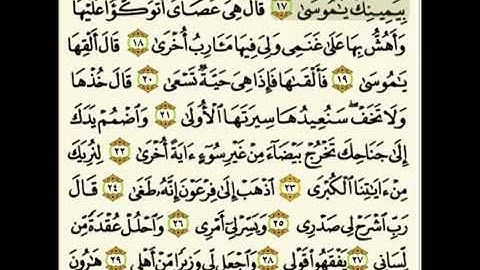 بِيَمِينِكَ يَٰمُوسَىٰ ١٧ قَالَ هِىَ عَصَاىَ أَتَوَكَّؤُا۟ عَلَيْهَا
وَأَهُشُّ بِهَا عَلَىٰ غَنَمِى وَلِىَ فِيهَا مَـَٔارِبُ أُخْرَىٰ ١٨ قَالَ أَلْقِهَا
يَٰمُوسَىٰ ١٩ فَأَلْقَىٰهَا فَإِذَا هِىَ حَيَّةٌ تَسْعَىٰ ٢٠ قَالَ خُذْهَا
وَلَا تَخَفْ ۖ سَنُعِيدُهَا سِيرَتَهَا ٱلْأُولَىٰ ٢١ وَٱضْمُمْ يَدَكَ
إِلَىٰ جَنَاحِكَ تَخْرُجْ بَيْضَآءَ مِنْ غَيْرِ سُوٓءٍ ءَايَةً أُخْرَىٰ ٢٢ لِنُرِيَكَ
مِنْ ءَايَٰتِنَا ٱلْكُبْرَى ٢٣ ٱذْهَبْ إِلَىٰ فِرْعَوْنَ إِنَّهُۥ طَغَىٰ ٢٤ قَالَ
رَبِّ ٱشْرَحْ لِى صَدْرِى ٢٥ وَيَسِّرْ لِىٓ أَمْرِى ٢٦ وَٱحْلُلْ عُقْدَةً مِّن
لِّسَانِى ٢٧ يَفْقَهُوا۟ قَوْلِى ٢٨ وَٱجْعَل لِّى وَزِيرًا مِّنْ أَهْلِى ٢٩ هَٰرُونَ